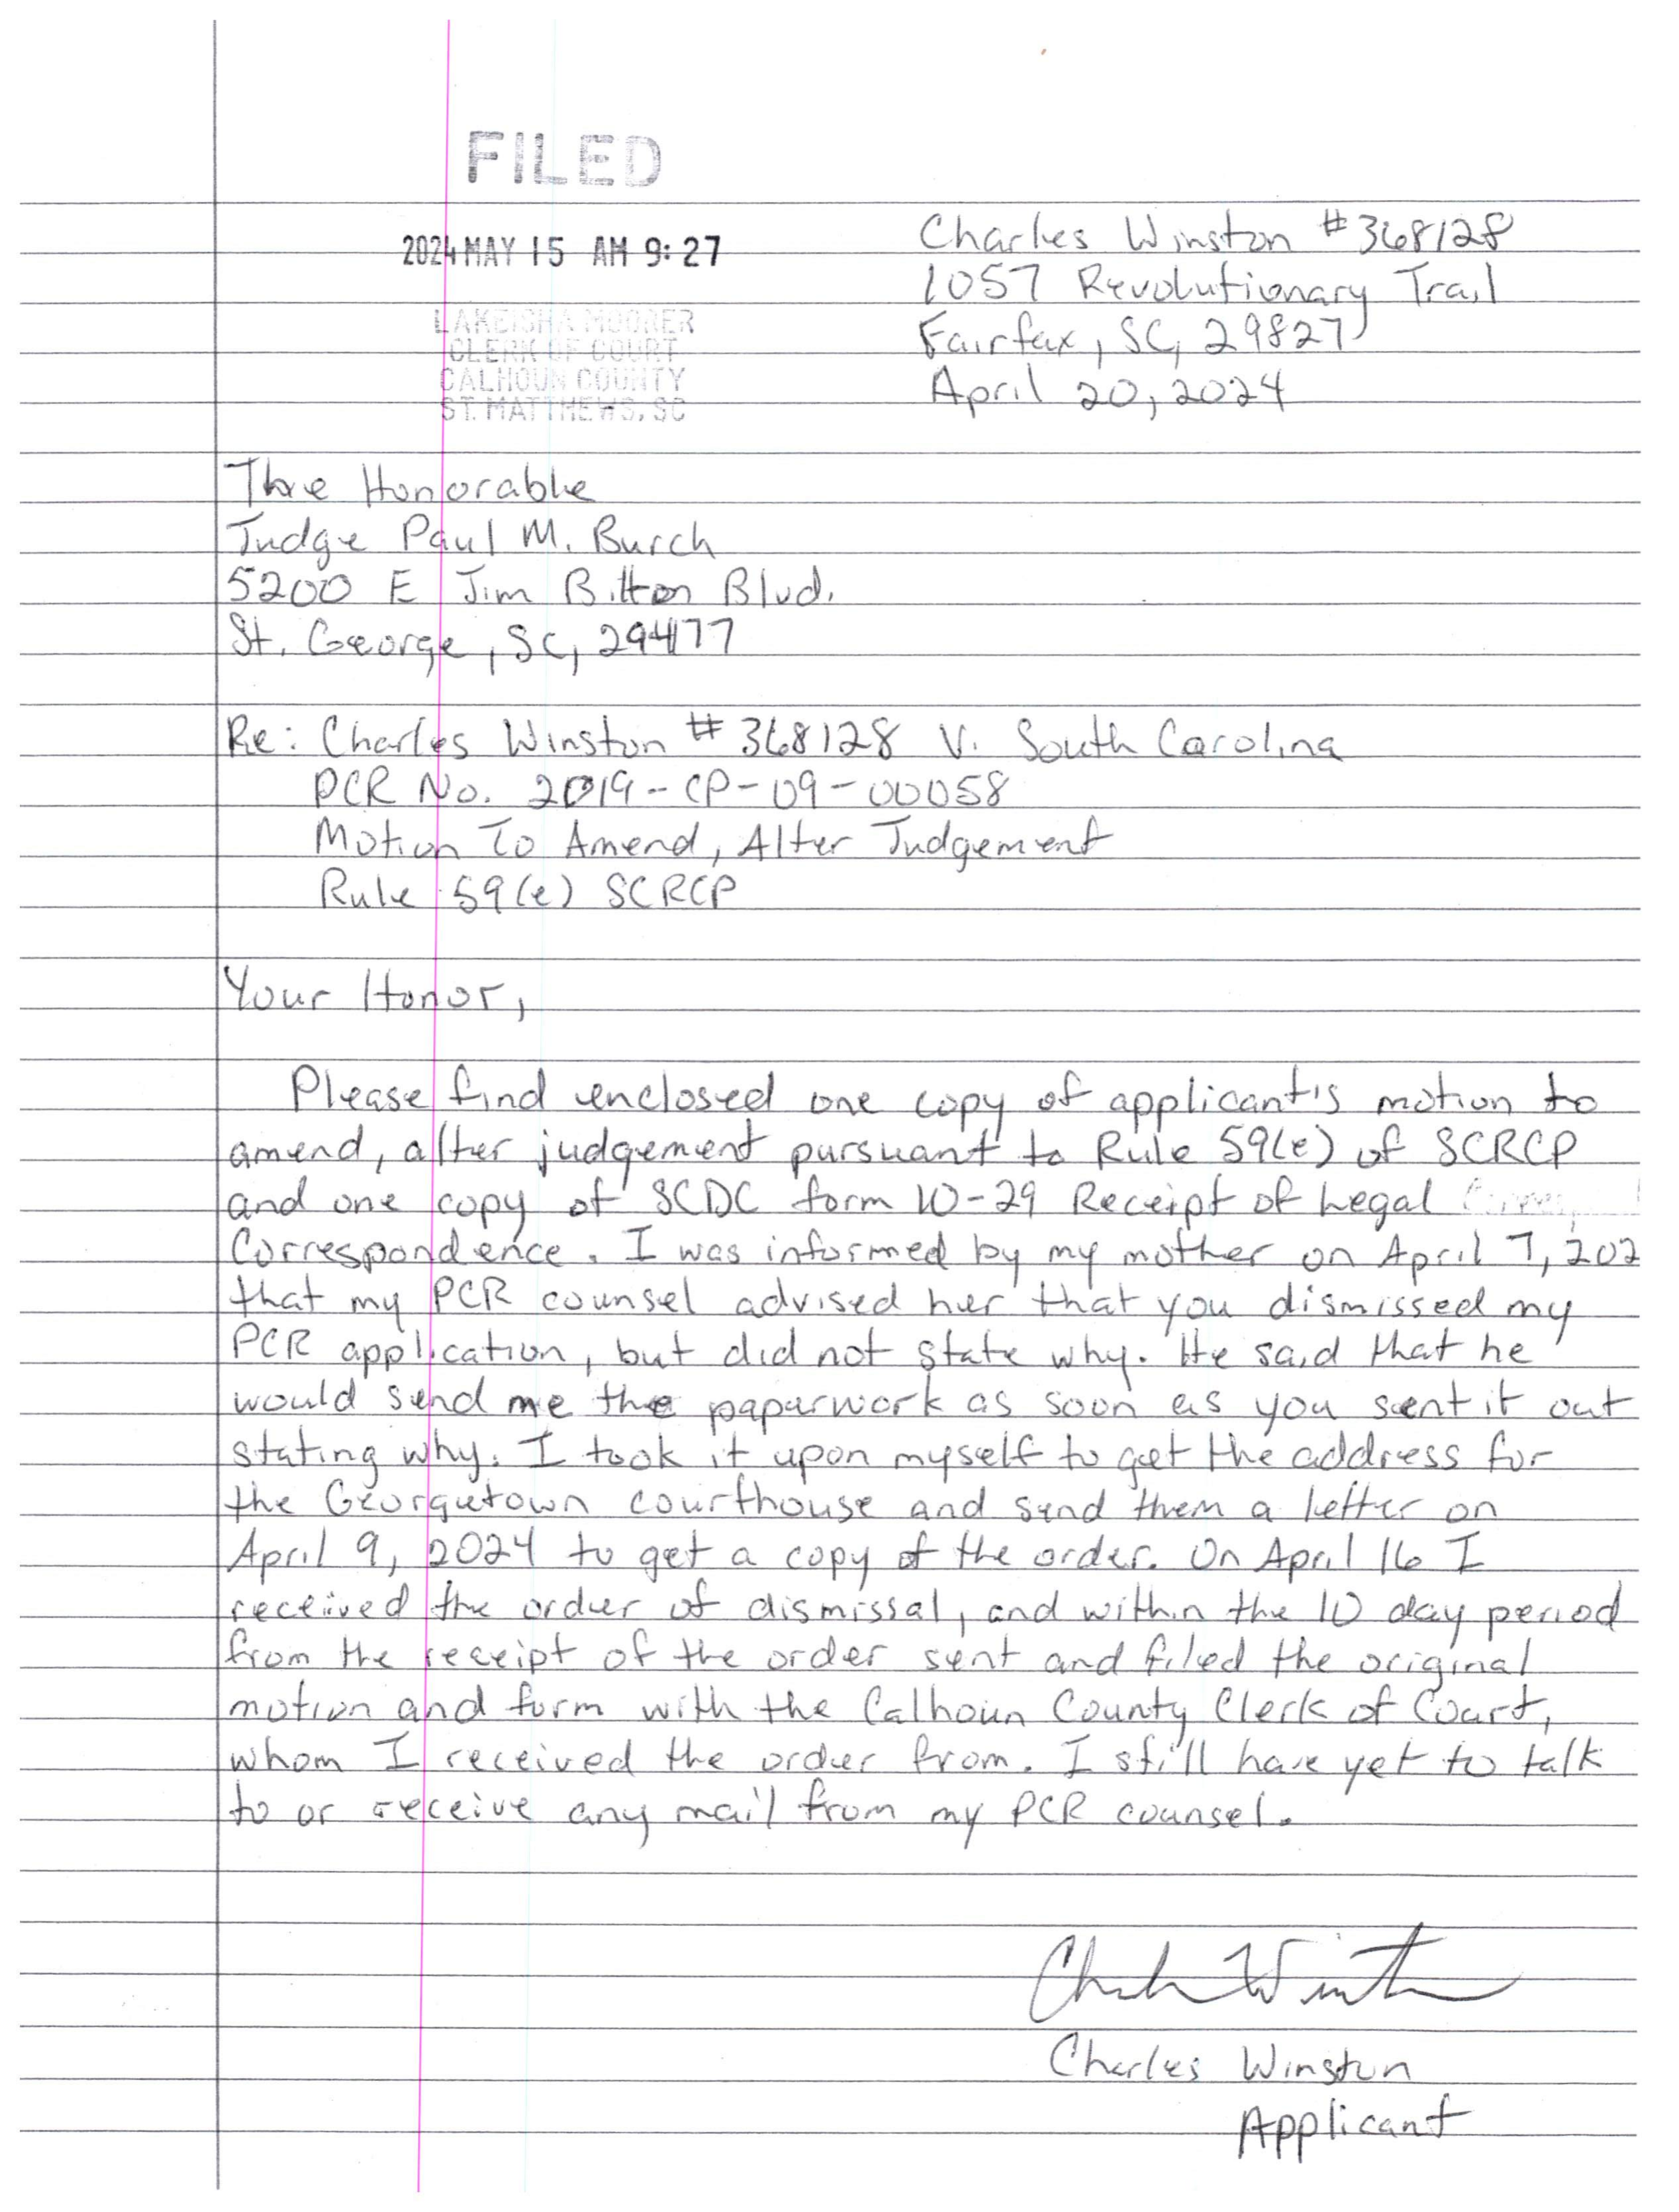 FILED
2024 MAY 15 AM 9:27
LAKEISHA MOORER
CLERK OF COURT
CALHOUN COUNTY
ST. MATTHEWS, SC
Charles Winston #368128
1057 Revolutionary Trail
Fairfax, SC, 29827
April 20, 2024
The Honorable
Judge Paul M. Burch
5200 E Jim Bilton Blvd.
St. George, SC, 29477
Re: Charles Winston #368128 V. South Carolina
PCR No. 2019-CP-09-00058
Motion To Amend, Alter Judgement
Rule 59(e) SCRCP
Your Honor,
Please find enclosed one copy of applicant's motion to
amend, alter judgement pursuant to Rule 59(e) of SCRCP
and one copy of SCDC form 10-29 Receipt of Legal
Correspondence. I was informed by my mother on April 7, 202
that my PCR counsel advised her that you dismissed my
PCR application, but did not state why. He said that he
would send me the paparwork as soon as you sent it out
stating why. I took it upon myself to get the address for
the Georgetown courthouse and send them a letter on
April 9, 2024 to get a copy of the order. On April 16 I
received the order of dismissal, and within the 10 day period
from the receipt of the order sent and filed the original
motion and form with the Calhoun County Clerk of Court,
whom I received the order from. I still have yet to talk
to or receive any mail from my PCR counsel.
Charles Winston
Applicant